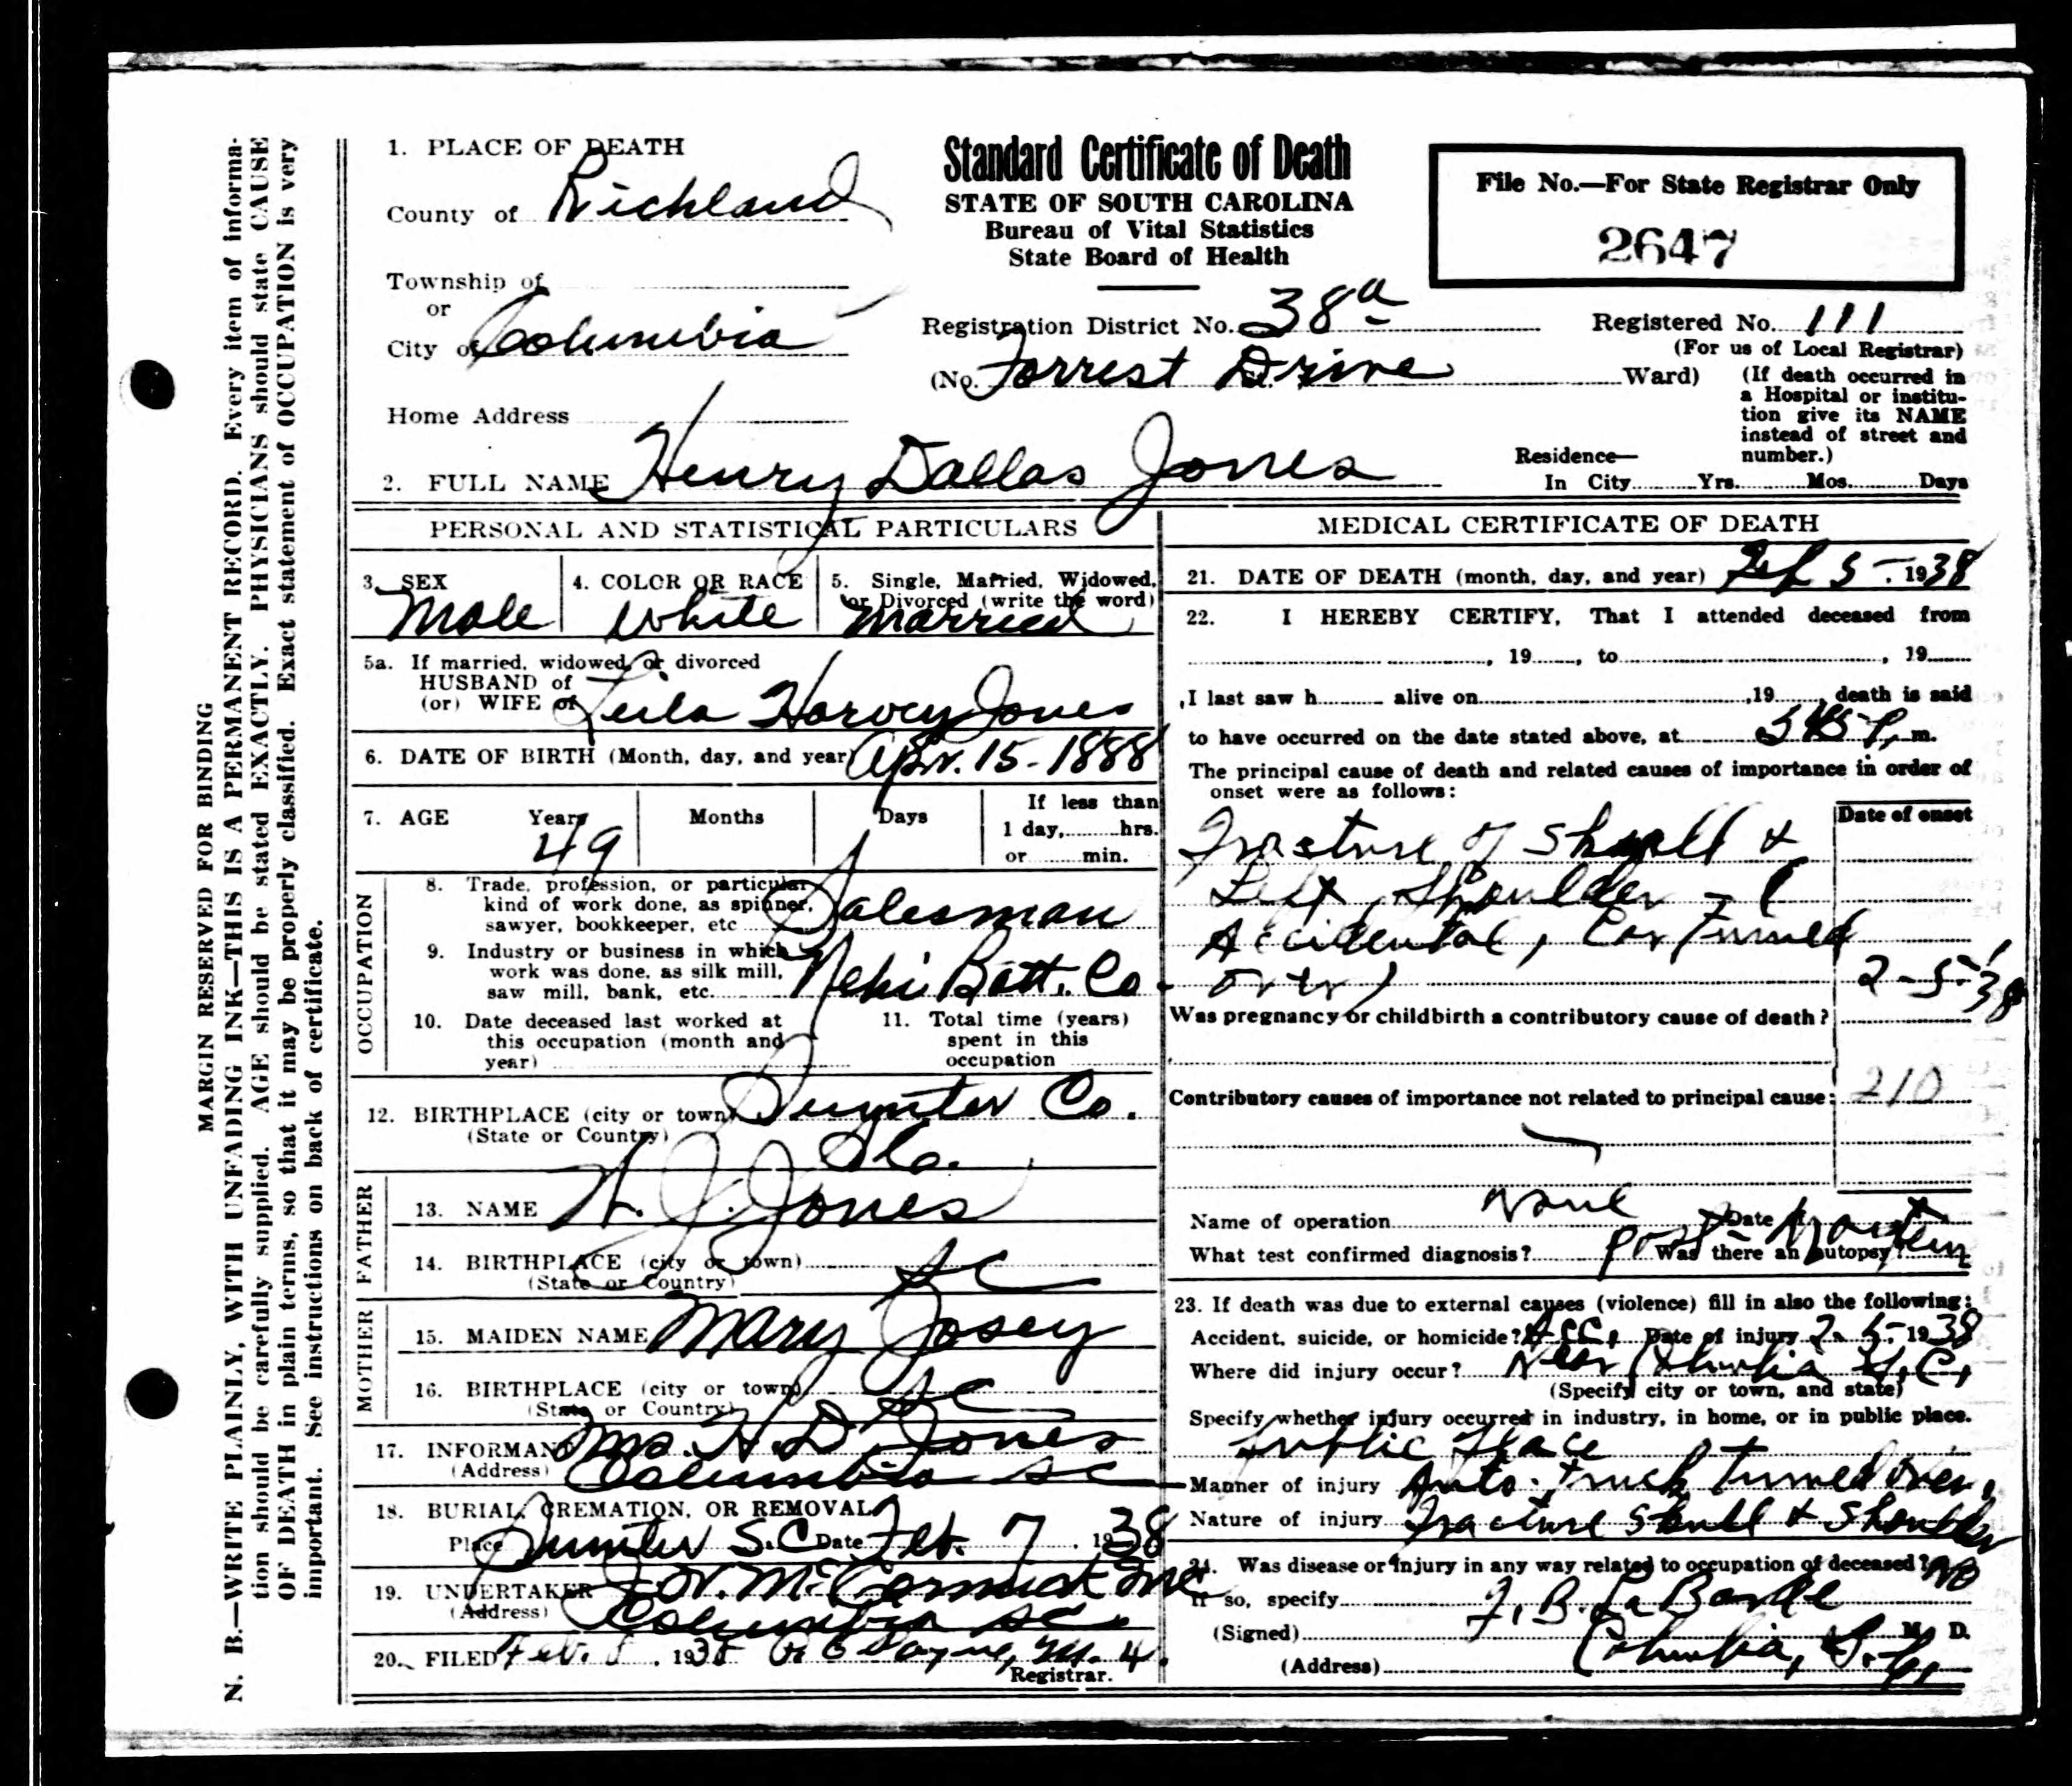 MARGIN RESERVED FOR BINDING
N. B.—WRITE PLAINLY, WITH UNFADING INK—THIS IS A PERMANENT RECORD. Every item of informa-
tion should be carefully supplied. AGE should be stated EXACTLY. PHYSICIANS should state CAUSE
OF DEATH in plain terms, so that it may be properly classified. Exact statement of OCCUPATION is very
important. See instructions on back of certificate.
1. PLACE OF DEATH
County of Richland
Township of
or
City of Columbia
Home Address
Standard Certificate of Death
STATE OF SOUTH CAROLINA
Bureau of Vital Statistics
State Board of Health
File No.—For State Registrar Only
2647
Registration District No. 38a
Registered No. 111
(For us of Local Registrar)
(No. Forrest Drive Ward)
(If death occurred in
a Hospital or institu-
tion give its NAME
instead of street and
number.)
2. FULL NAME Henry Dallas Jones
Residence—
In City Yrs. Mos. Days
PERSONAL AND STATISTICAL PARTICULARS
3. SEX
Male
4. COLOR OR RACE
White
5. Single, Married, Widowed,
or Divorced (write the word)
Married
5a. If married, widowed, or divorced
HUSBAND of
(or) WIFE of Leila Harvey Jones
6. DATE OF BIRTH (Month, day, and year) Apr. 15-1888
7. AGE Years Months Days If less than
49 1 day, hrs.
or min.
OCCUPATION
8. Trade, profession, or particular
kind of work done, as spinner,
sawyer, bookkeeper, etc Salesman
9. Industry or business in which
work was done, as silk mill,
saw mill, bank, etc. Nehi Bott. Co.
10. Date deceased last worked at
this occupation (month and
year)
11. Total time (years)
spent in this
occupation
12. BIRTHPLACE (city or town) Sumter Co.
(State or Country) So.
FATHER
13. NAME J. Jones
14. BIRTHPLACE (city or town) SC
(State or Country)
MOTHER
15. MAIDEN NAME Mary Josey
16. BIRTHPLACE (city or town) SC
(State or Country)
17. INFORMANT Mrs. H. D. Jones
(Address) Columbia SC
18. BURIAL, CREMATION, OR REMOVAL
Place Sumter S.C Date Feb. 7 1938
19. UNDERTAKER McCormick Inc
(Address) Columbia SC
20. FILED Feb. 8, 1938
Registrar.
MEDICAL CERTIFICATE OF DEATH
21. DATE OF DEATH (month, day, and year) Feb 5-, 1938
22. I HEREBY CERTIFY, That I attended deceased from
, 19 , to , 19
,I last saw h alive on ,19 , death is said
to have occurred on the date stated above, at 545 P. m.
The principal cause of death and related causes of importance in order of
onset were as follows:
Date of onset
Fracture of Skull &
Left, Shoulder - (
Accidental, Car turned
over)
2-5-'38
Was pregnancy or childbirth a contributory cause of death?
Contributory causes of importance not related to principal cause: 210
Name of operation None Date of
What test confirmed diagnosis? Post-Mortem Was there an autopsy?
23. If death was due to external causes (violence) fill in also the following:
Accident, suicide, or homicide? Acc. Date of injury 2-5-1938
Where did injury occur? Near Columbia S.C.
(Specify city or town, and state)
Specify whether injury occurred in industry, in home, or in public place.
Public Place
Manner of injury Auto-truck turned over.
Nature of injury Fracture Skull & Shoulder
24. Was disease or injury in any way related to occupation of deceased? No
If so, specify
(Signed) M. D.
(Address) Columbia, S. C.